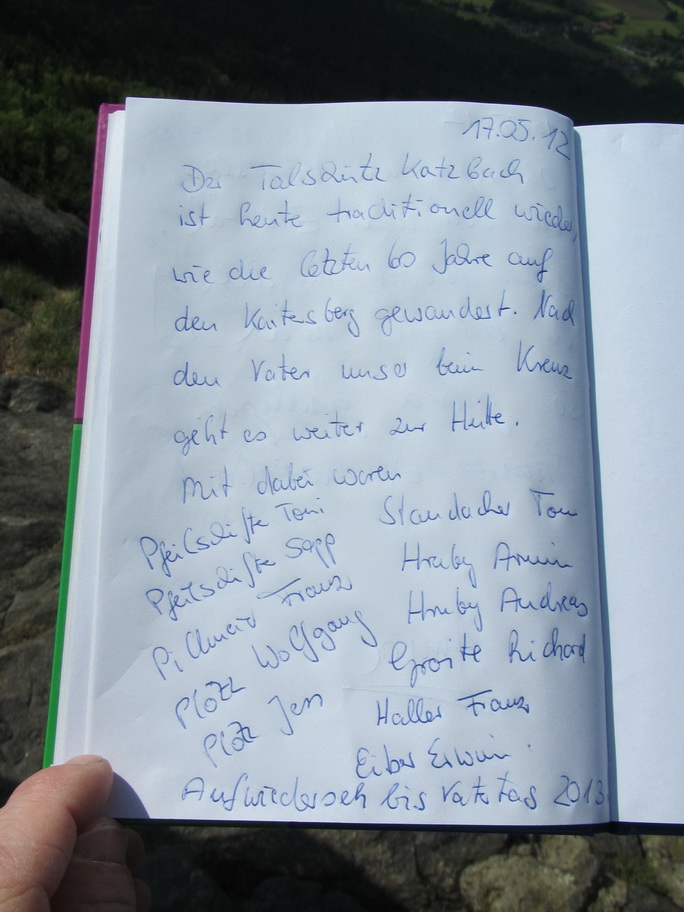 17.05.12
Der Talschütz Katzbach
ist heute traditionell wieder,
wie die letzten 60 Jahre auf
den Kaitersberg gewandert. Nach
den Vater unser beim Kreuz
geht es weiter zur Hütte.
Mit dabei waren
Pfeilschifte Toni
Pfeilschifte Sepp
Franz
Plötz Wolfgang
Plötz Jens
Staudacher Tom
Hruby Armin
Hruby Andreas
Richard
Haller Franz
Eiber Erwin.
Aufwiederseh bis Vatertag 2013.